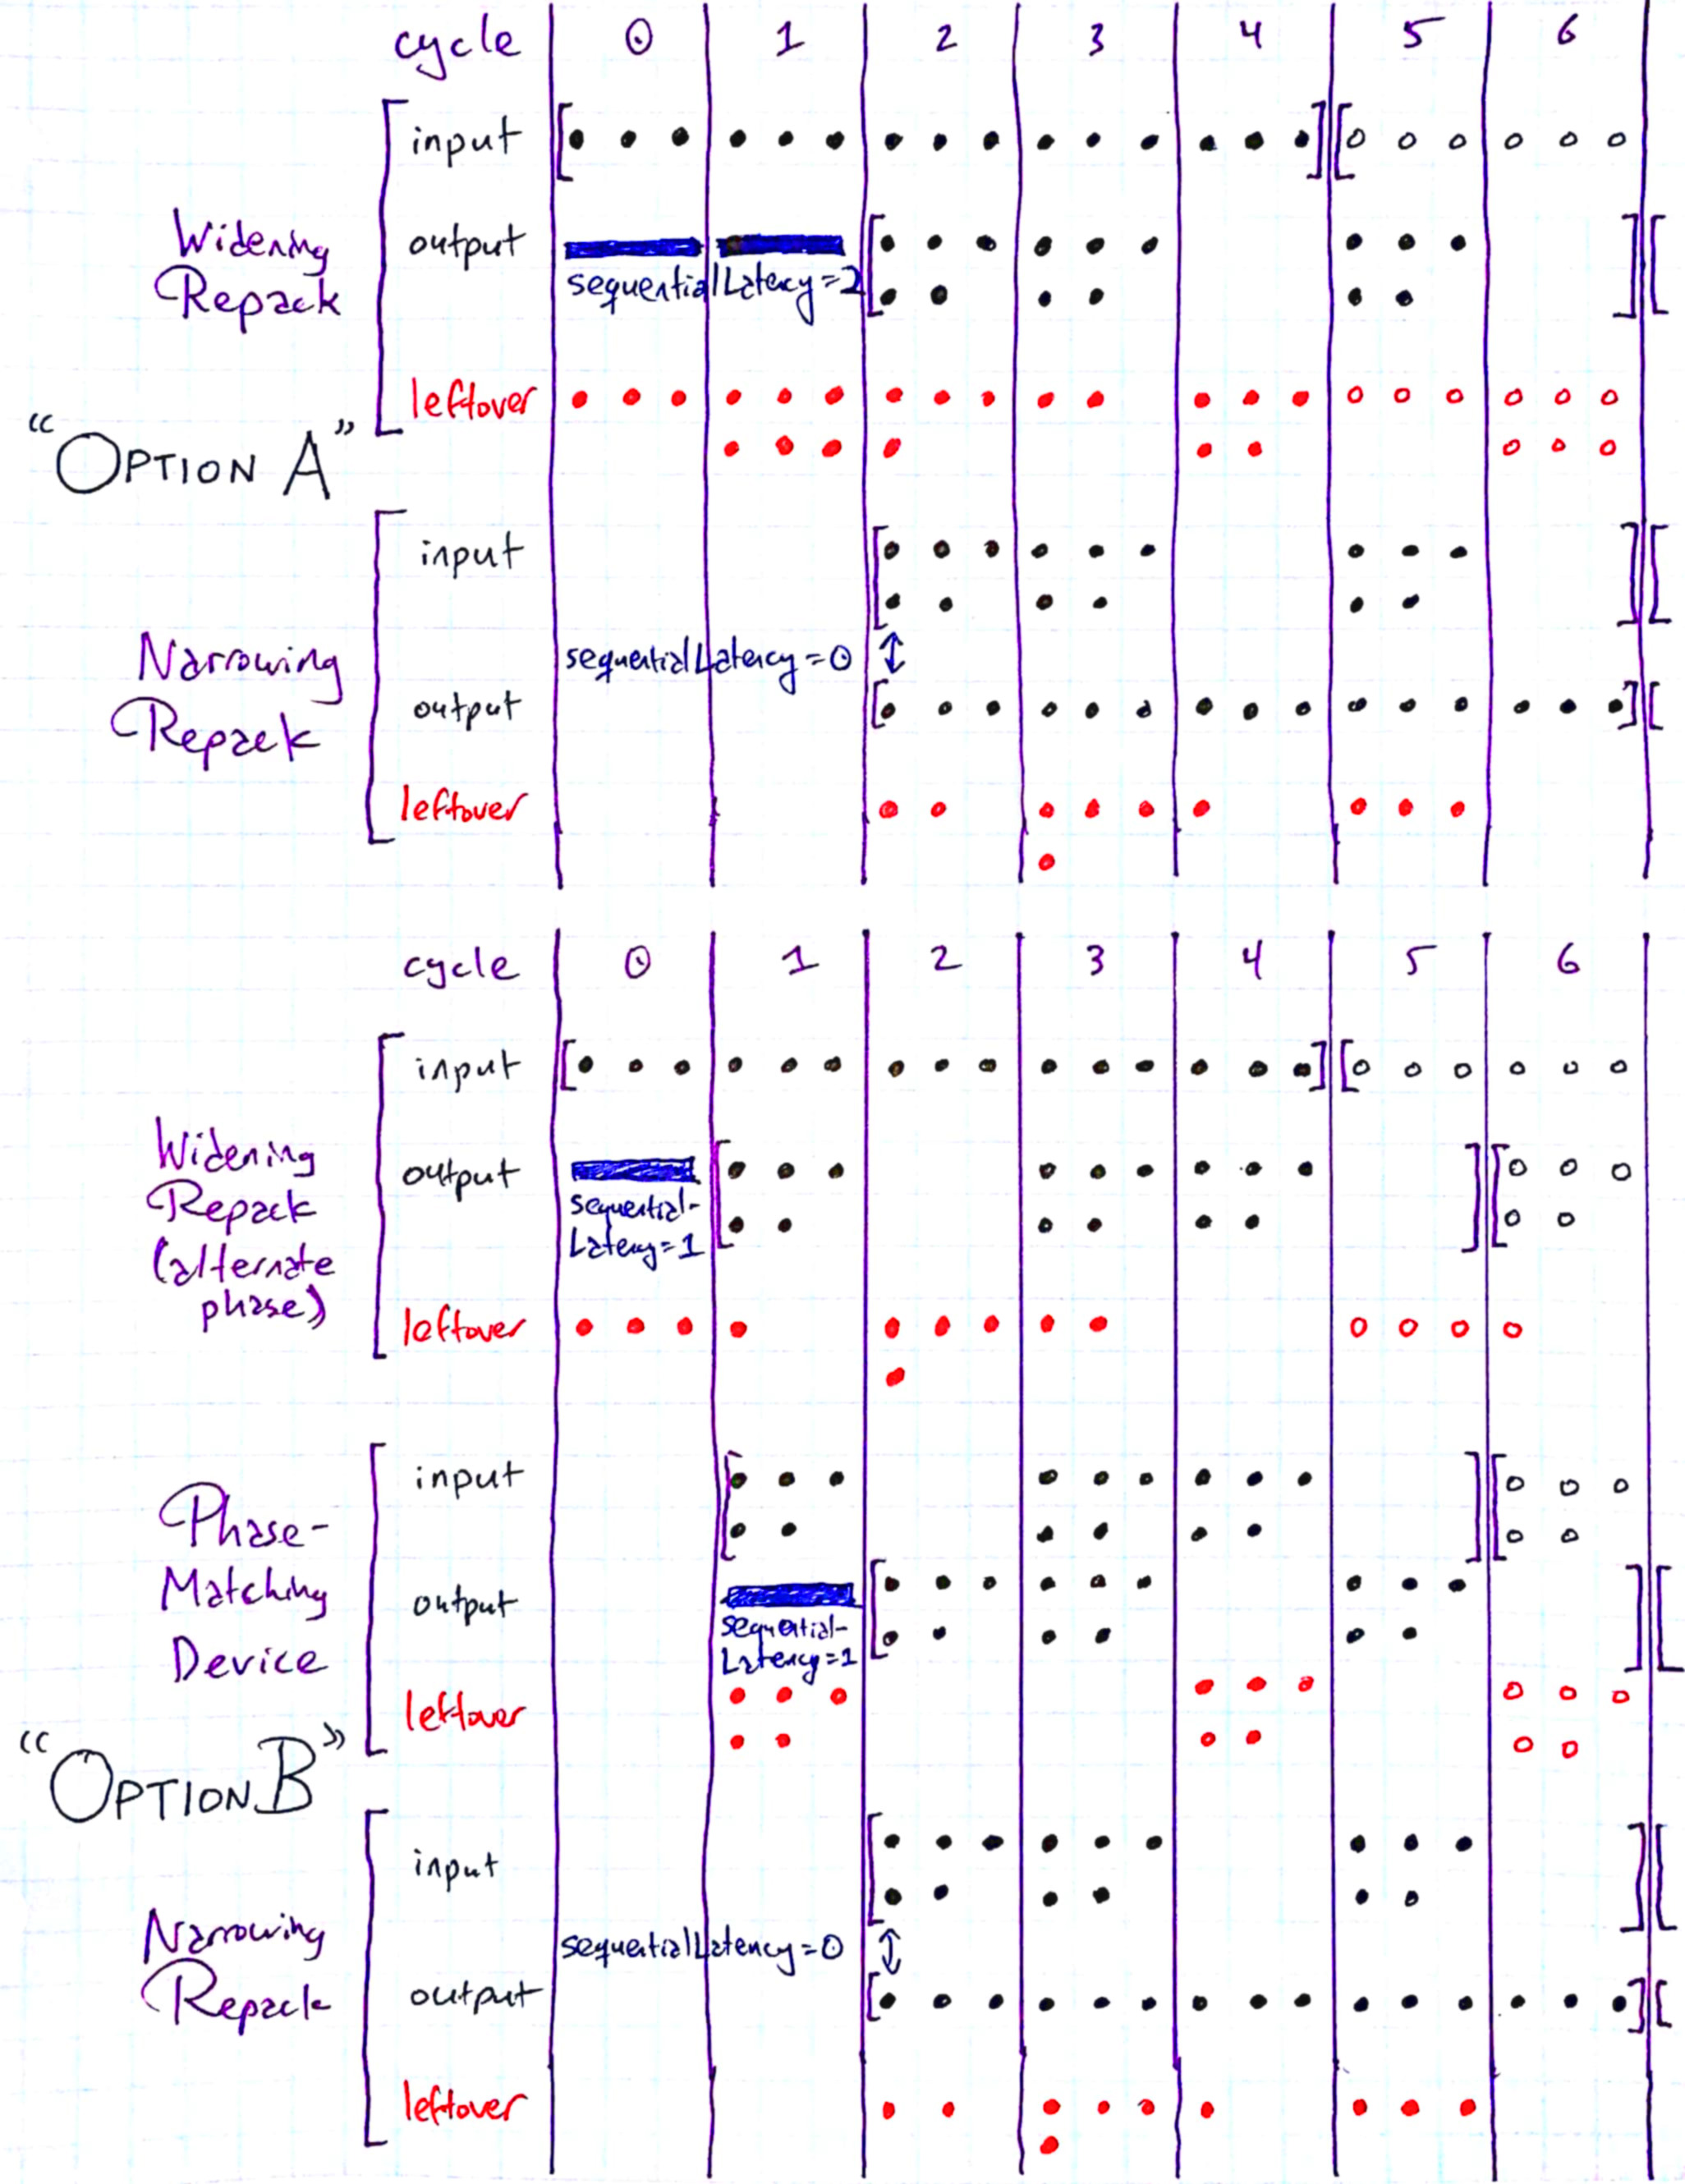 cycle 0 1 2 3 4 5 6
input
Widening
Repack
output
sequentialLatency=2
leftover
“OPTION A”
input
Narrowing
Repack
sequentialLatency=0
output
leftover
cycle 0 1 2 3 4 5 6
input
Widening
Repack
(alternate
phase)
output
sequential-
Latency=1
leftover
Phase-
Matching
Device
input
output
sequential-
Latency=1
leftover
“OPTION B”
input
Narrowing
Repack
sequentialLatency=0
output
leftover